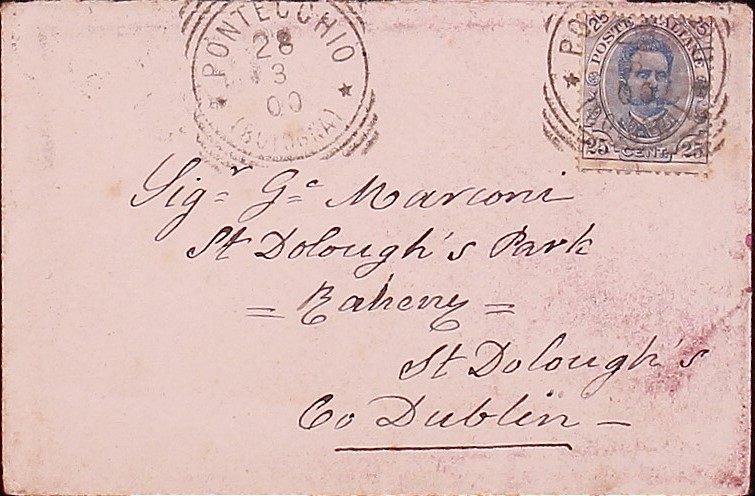 PONTECCHIO
28
3
00
(BOLOGNA)
25 POSTE ITALIANE 25
25 CENT. 25
Sigr Gc Marconi
St Dolough's Park
= Raheny =
St Dolough's
Co Dublin -